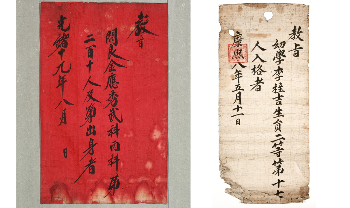 教旨
閑良金應秀武科丙科第
二百十人及第出身者
光緒十九年八月 日
教旨
幼學李桂吉生員三等第十七
人入格者
康熙八年五月十一日